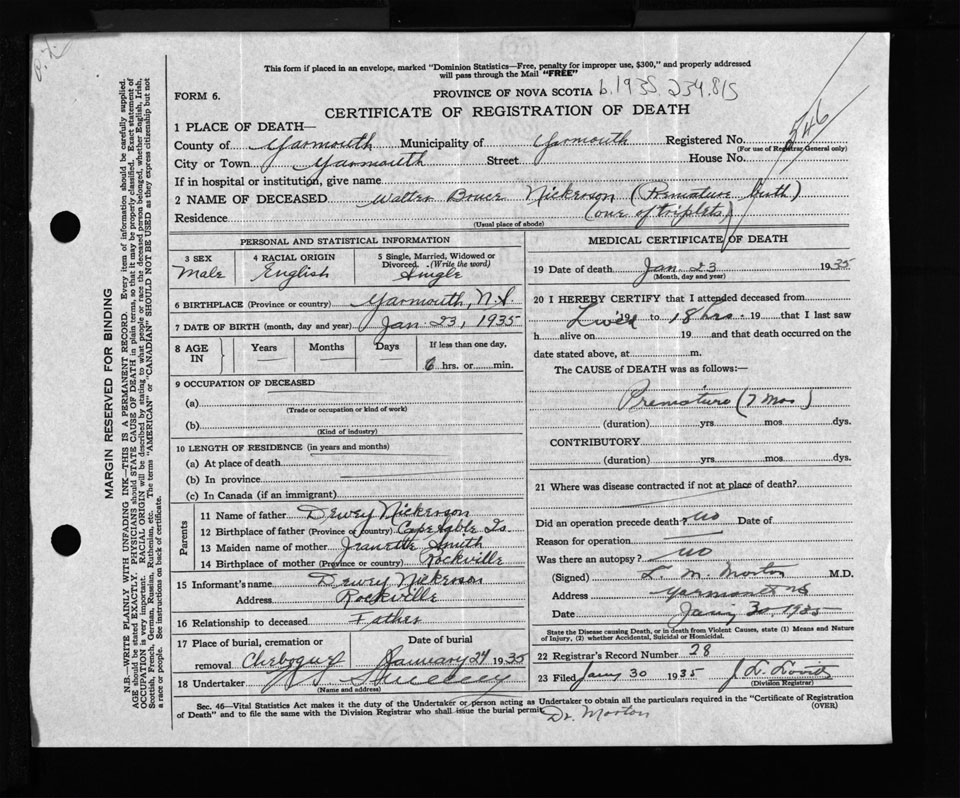 This form if placed in an envelope, marked "Dominion Statistics—Free, penalty for improper use, $300," and properly addressed
will pass through the Mail "FREE"
FORM 6.
PROVINCE OF NOVA SCOTIA b.1935 234.815
CERTIFICATE OF REGISTRATION OF DEATH
546
1 PLACE OF DEATH—
County of Yarmouth Municipality of Yarmouth Registered No.
(For use of Registrar General only)
City or Town Yarmouth Street House No.
If in hospital or institution, give name
2 NAME OF DECEASED Walter Bruce Nickerson (Premature birth)
(one of triplets)
Residence
(Usual place of abode)
PERSONAL AND STATISTICAL INFORMATION
3 SEX
Male
4 RACIAL ORIGIN
English
5 Single, Married, Widowed or
Divorced. (Write the word)
Single
6 BIRTHPLACE (Province or country) Yarmouth, N.S.
7 DATE OF BIRTH (month, day and year) Jan 23, 1935
8 AGE
IN
Years
Months
Days
If less than one day,
6 hrs. or min.
9 OCCUPATION OF DECEASED
(a)
(Trade or occupation or kind of work)
(b)
(Kind of industry)
10 LENGTH OF RESIDENCE (in years and months)
(a) At place of death
(b) In province
(c) In Canada (if an immigrant)
Parents
11 Name of father Dewey Nickerson
12 Birthplace of father (Province or country) Cape Sable Is.
13 Maiden name of mother Jeanette Smith
14 Birthplace of mother (Province or country) Rockville
15 Informant's name Dewey Nickerson
Address Rockville
16 Relationship to deceased Father
17 Place of burial, cremation or
removal Chebogue
Date of burial
January 24 1935
18 Undertaker
(Name and address)
MEDICAL CERTIFICATE OF DEATH
19 Date of death Jan. 23 1935
(Month, day and year)
20 I HEREBY CERTIFY that I attended deceased from
Lived 19 to 18 hrs 19 that I last saw
h alive on 19 and that death occurred on the
date stated above, at m.
The CAUSE of DEATH was as follows:—
Premature (7 mos)
(duration) yrs. mos. dys.
CONTRIBUTORY
(duration) yrs. mos. dys.
21 Where was disease contracted if not at place of death?
Did an operation precede death? no Date of
Reason for operation
Was there an autopsy? no
(Signed) L. M. Morton M.D.
Address Yarmouth NS
Date Jany 30, 1935
State the Disease causing Death, or in death from Violent Causes, state (1) Means and Nature
of Injury, (2) whether Accidental, Suicidal or Homicidal.
22 Registrar's Record Number 28
23 Filed Jany 30 1935
(Division Registrar)
Sec. 46—Vital Statistics Act makes it the duty of the Undertaker or person acting as Undertaker to obtain all the particulars required in the "Certificate of Registration
of Death" and to file the same with the Division Registrar who shall issue the burial permit.
(OVER)
Dr. Morton
MARGIN RESERVED FOR BINDING
N.B.—WRITE PLAINLY WITH UNFADING INK—THIS IS A PERMANENT RECORD. Every item of information should be carefully supplied.
AGE should be stated EXACTLY. PHYSICIANS should STATE CAUSE OF DEATH in plain terms, so that it may be properly classified. Exact statement of
OCCUPATION is very important. RACIAL ORIGIN will be described by stating to what people or race the deceased person belonged, whether English, Irish,
Scottish, French, German, Russian, Ruthenian, etc. The terms "AMERICAN" or "CANADIAN" SHOULD NOT BE USED as they express citizenship but not
a race or people. See instructions on back of certificate.